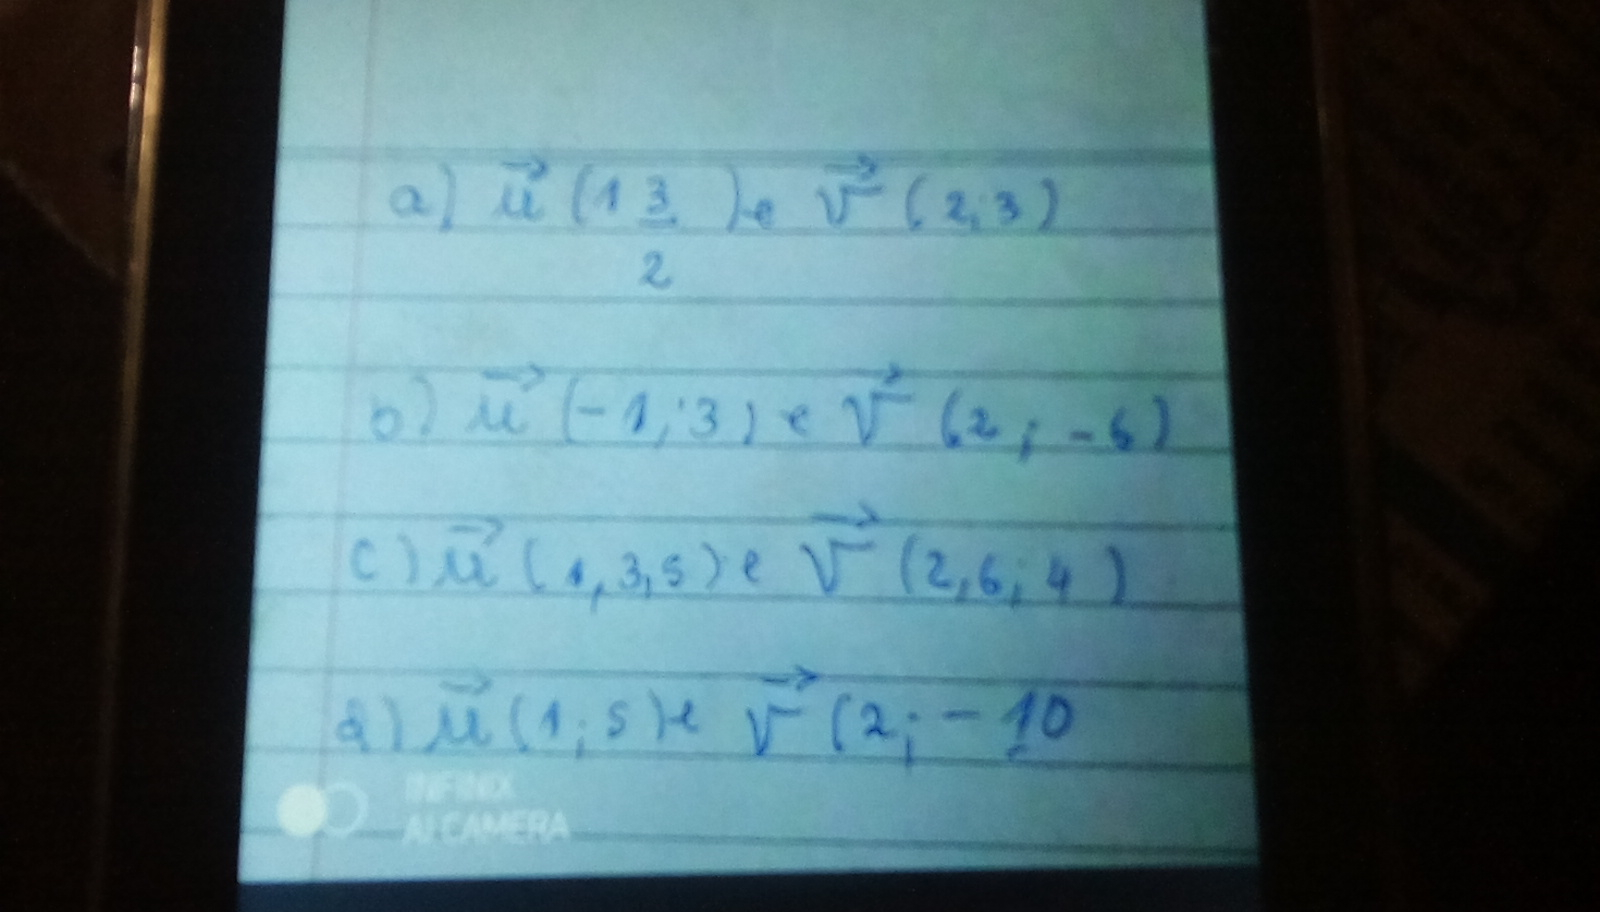 a) u⃗ (1 3/2) e v⃗ (2; 3)
b) u⃗ (-1; 3) e v⃗ (2; -6)
c) u⃗ (1, 3, 5) e v⃗ (2, 6; 4)
d) u⃗ (1; 5) e v⃗ (2; -10
INFINIX
AI CAMERA